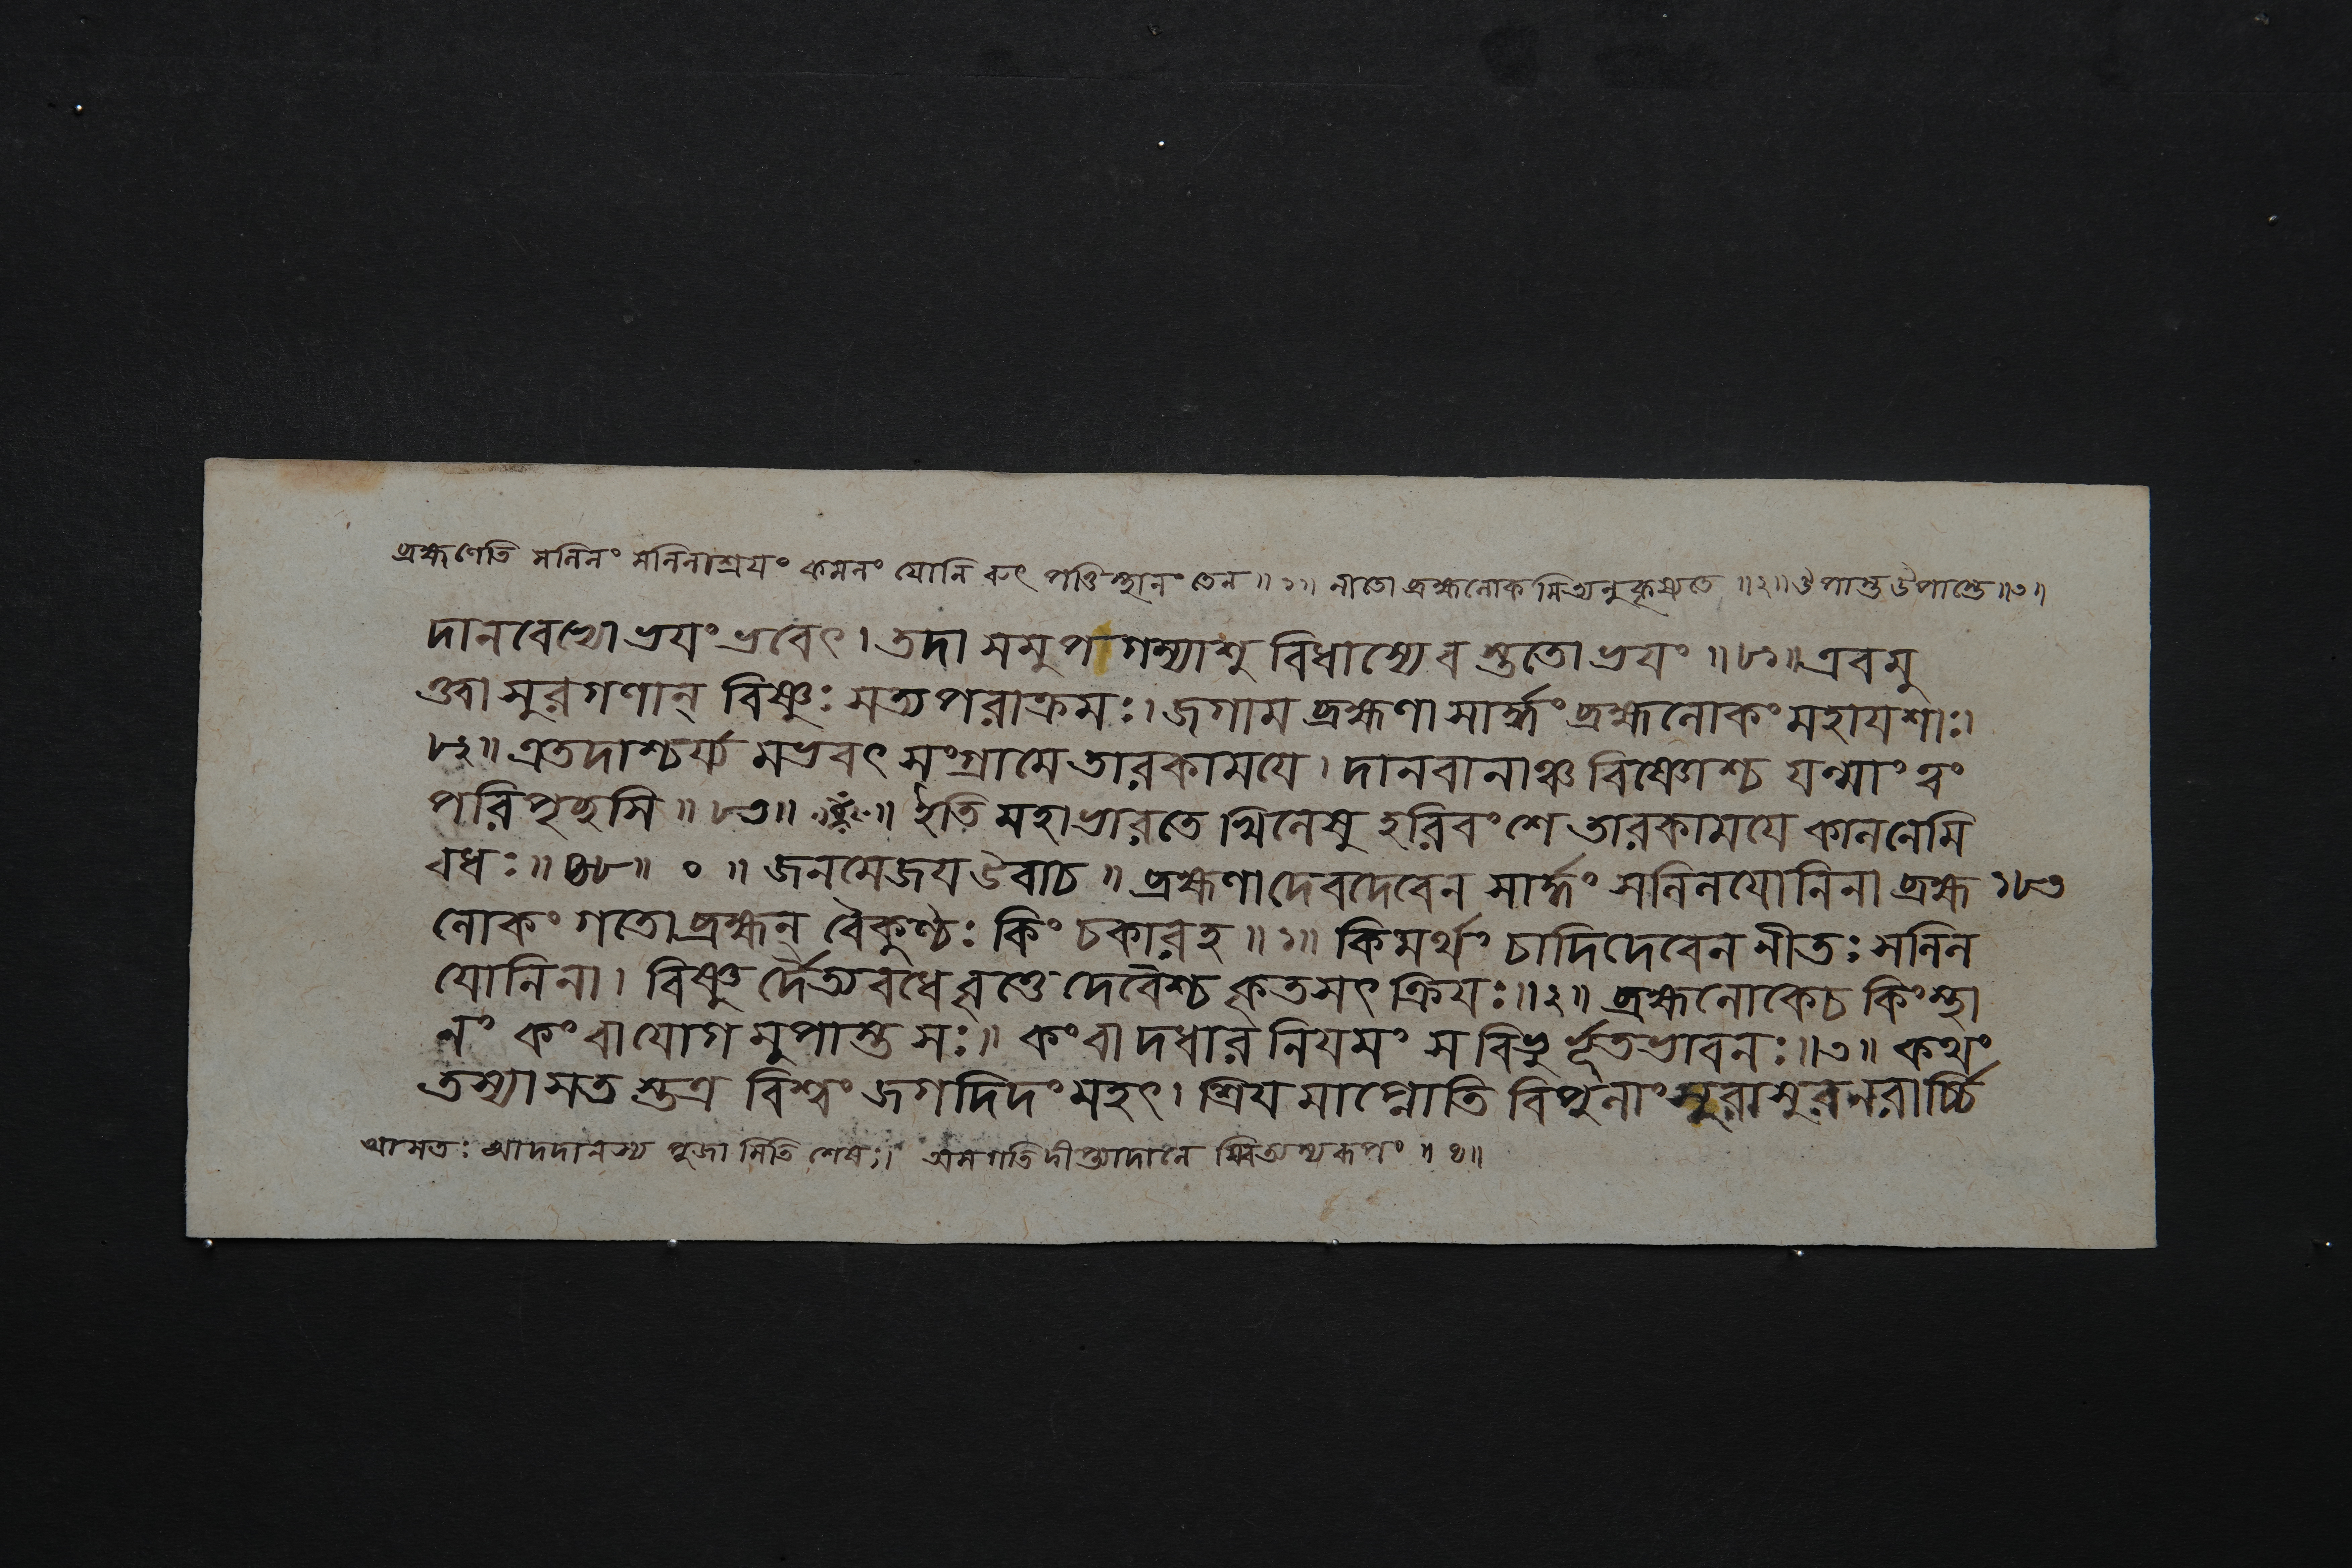 ব্রহ্মণেতি সলিলং সলিলাশ্রযং কমলং যোনি রুৎপত্তিস্থানং তেন ॥১॥ নীতো ব্রহ্মলোকমিত্যনুকৃষ্যতে ॥২॥ উপাস্ত উপাস্তে ॥৩॥
দানবেভ্যো ভযং ভবেৎ। তদা সমুপগম্যাশু বিধাস্যে ব স্ততো ভযং ॥৮১॥ এবমু
ক্ত্বা সুরগণান্ বিষ্ণুঃ সত্যপরাক্রমঃ। জগাম ব্রহ্মণা সার্দ্ধং ব্রহ্মলোকং মহাযশাঃ।
৮২॥ এতদাশ্চর্য্য মভবৎ সংগ্রামে তারকামযে। দানবানাঞ্চ বিষ্ণোশ্চ যন্মাং ত্বং
পরিপৃচ্ছসি ॥৮৩॥ ইতি মহাভারতে খিলেষু হরিবংশে তারকামযে কালনেমি
বধঃ ॥৪৮॥ ০ ॥ জনমেজয উবাচ ॥ ব্রহ্মণা দেবদেবেন সার্দ্ধং সলিলযোনিনা ব্রহ্ম ১৮৩
লোকং গতো ব্রহ্মন্ বৈকুণ্ঠঃ কিং চকার হ ॥১॥ কিমর্থং চাদিদেবেন নীতঃ সলিল
যোনিনা। বিষ্ণু র্দৈত্যবধে বৃত্তে দেবৈশ্চ কৃতসৎক্রিযঃ॥২॥ ব্রহ্মলোকে চ কিং স্থা
নং কং বা যোগ মুপাস্ত সঃ॥ কং বা দধার নিযমং স বিভু র্ভূতভাবনঃ॥৩॥ কথং
তস্যাসত স্তত্র বিশ্বং জগদিদং মহৎ। শ্রিয মাপ্নোতি বিপুলাং সুরাসুরনরার্চ্চি
আসতঃ আদদানস্য পূজা মিতি শেষঃ। অস গতিদীপ্ত্যাদানে রূপং ॥৪॥